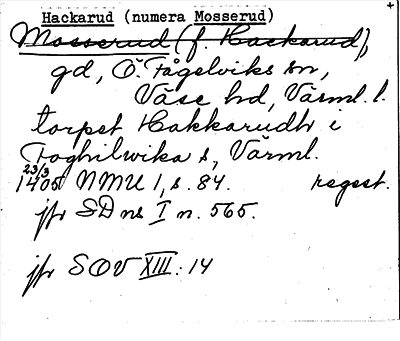 +
Hackarud (numera Mosserud)
Mosserud (f. Hackarud),
gd, Ö. Fågelviks sn,
Väse hd, Värml. l.
torpet Hakkarudh i
Foghilwika s, Värml.
23/3
1405 NMU 1, s. 84. regest.
jfr SD ns I n. 565.
jfr SOV XIII: 14